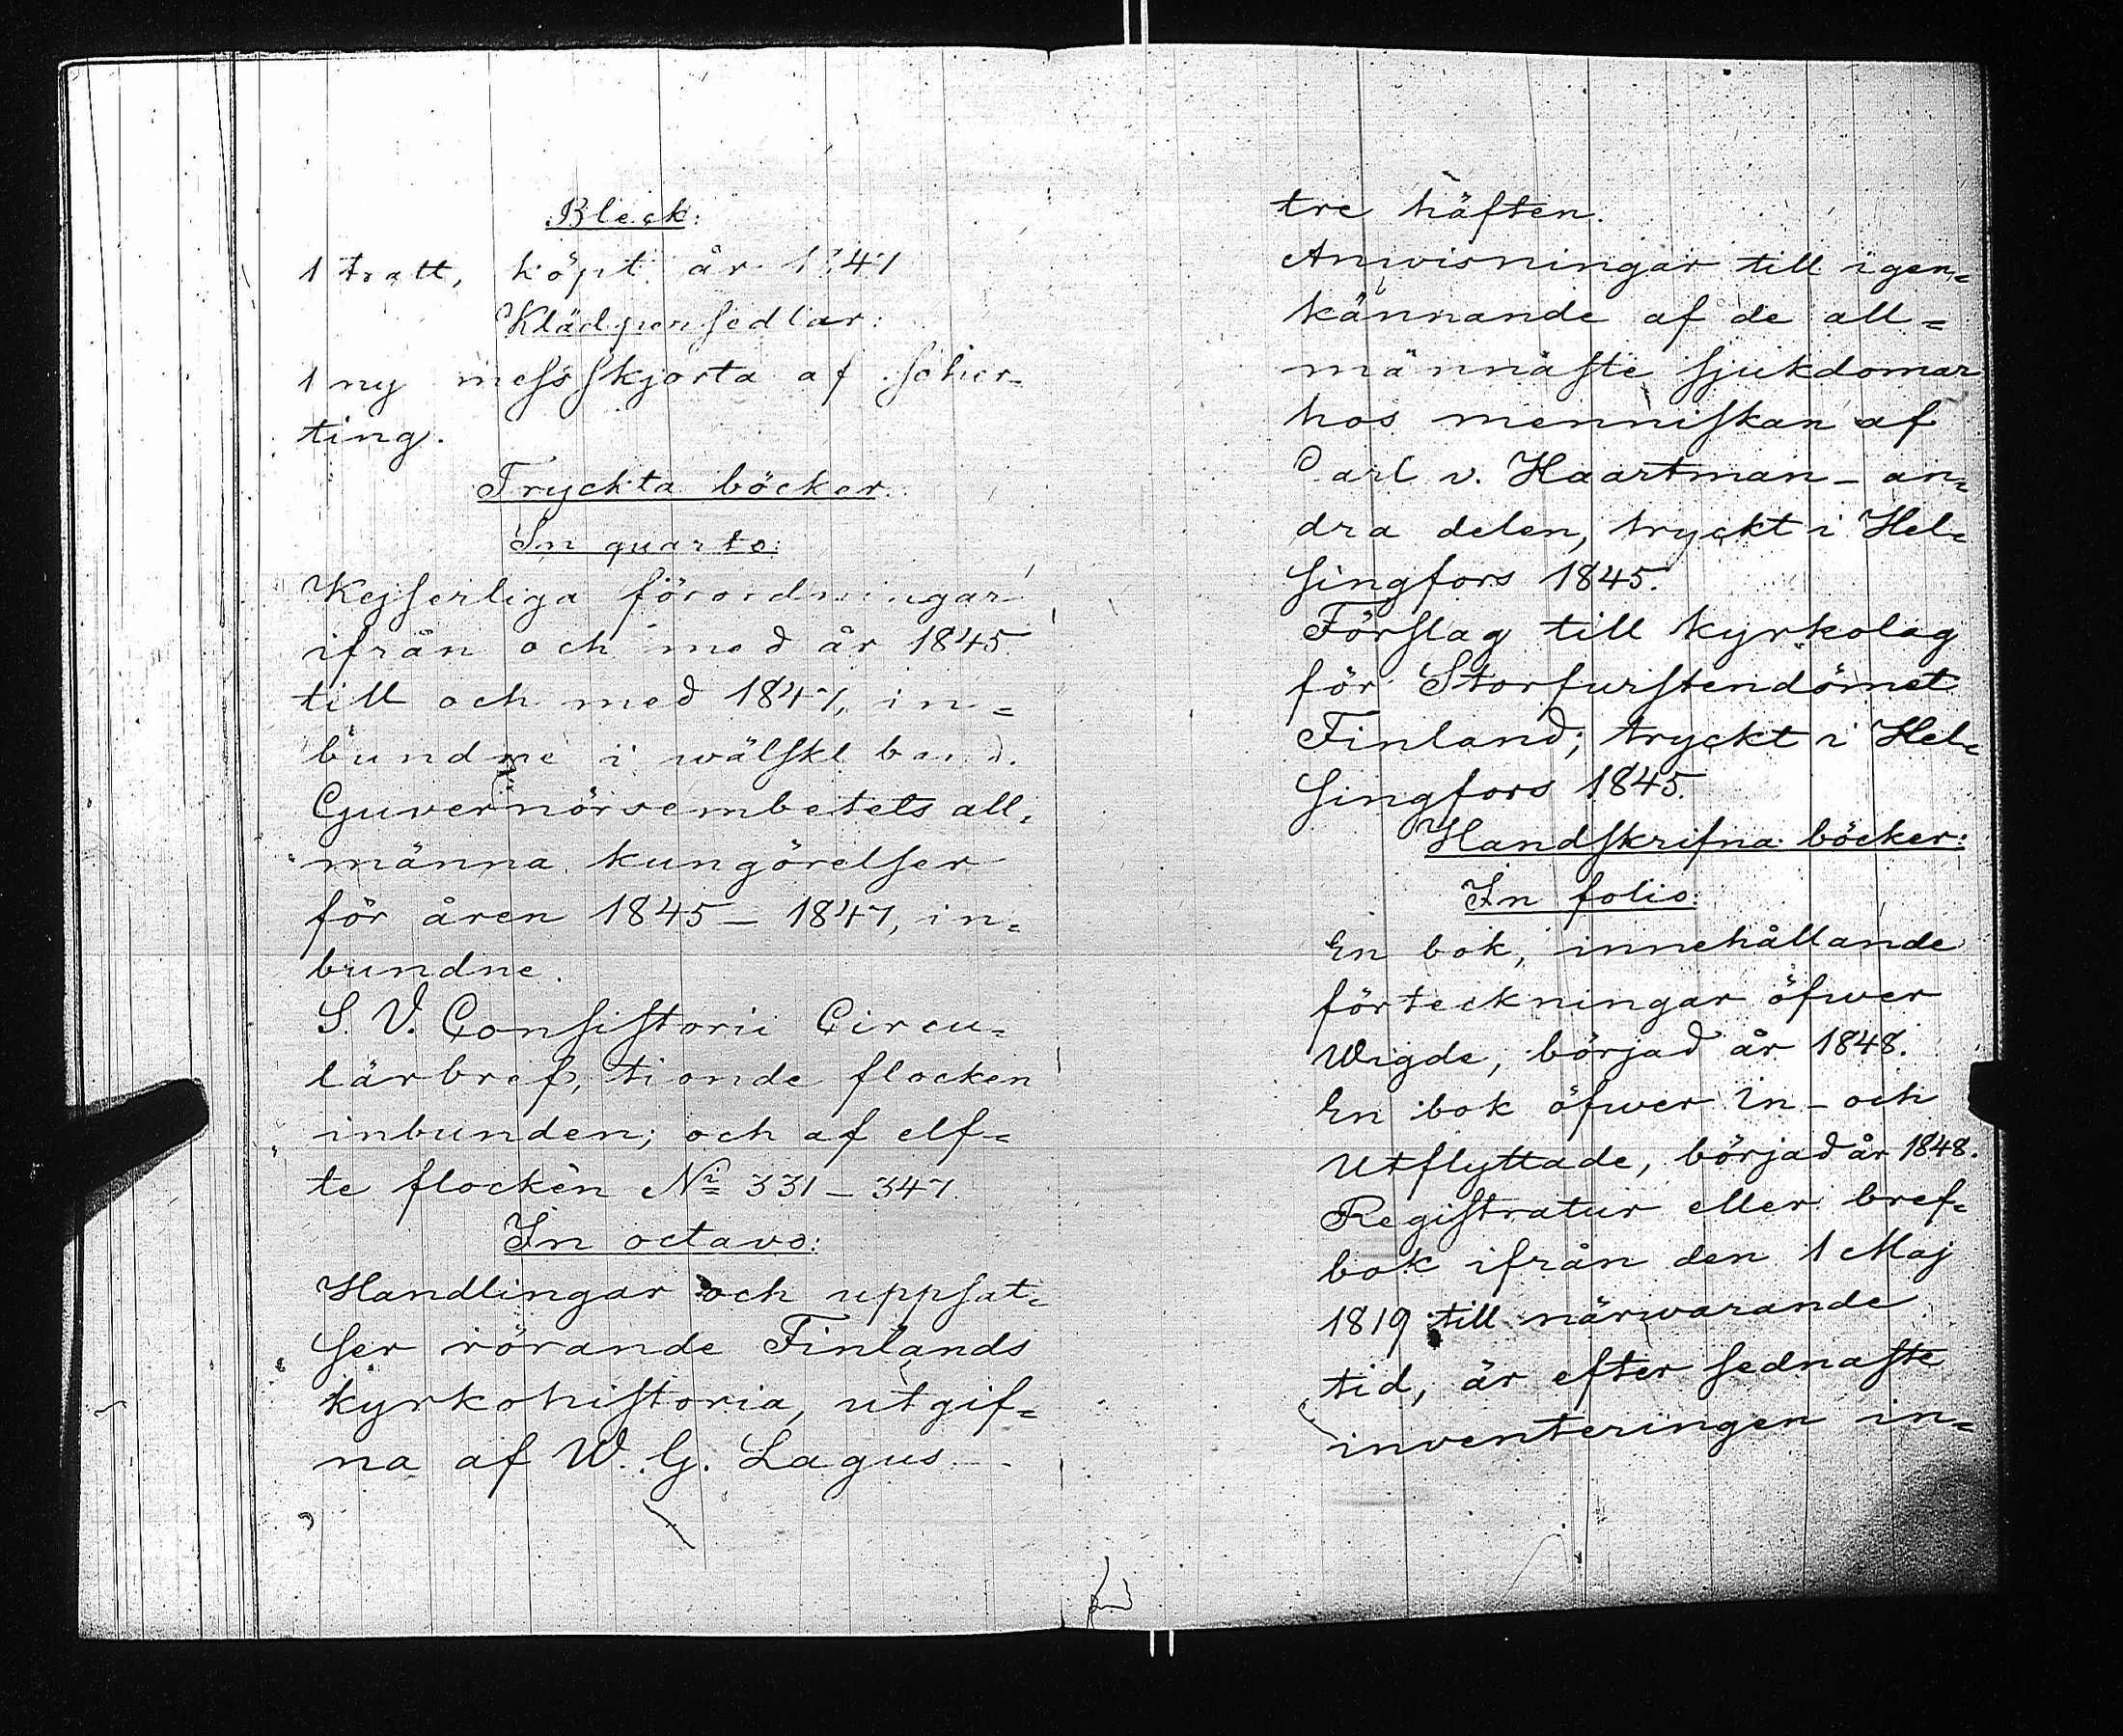 Bleck:
1 tratt, köpt år 1847
Klädpersedlar:
1 ny messskjorta af schir-
ting.
Tryckta böcker.
In quarto:
Kejserliga förordningar
ifrån och med år 1845
till och med 1847, in=
bundne i wälskt band.
Guvernörsembetets all=
männa kungörelser
för åren 1845–1847, in=
bundne.
S. V. Consistorii Circu=
lärbref, tionde flocken
inbunden; och af elf=
te flocken No 331–347.
In octavo:
Handlingar och uppsat=
ser rörande Finlands
kyrkohistoria, utgif=
na af W. G. Lagus
tre häften.
Anwisningar till igen=
kännande af de all=
männaste sjukdomar
hos menniskan af
Carl v. Haartman – an=
dra delen, tryckt i Hel=
singfors 1845.
Förslag till Kyrkolag
för Storfurstendömet
Finland; tryckt i Hel=
singfors 1845.
Handskrifna böcker:
In folio:
En bok, innehållande
förteckningar öfwer
Wigde, börjad år 1848.
En bok öfwer In- och
Utflyttade, börjad år 1848.
Registratur eller bref=
bok ifrån den 1 Maj
1819 till närwarande
tid, är efter sednaste
inventeringen in=